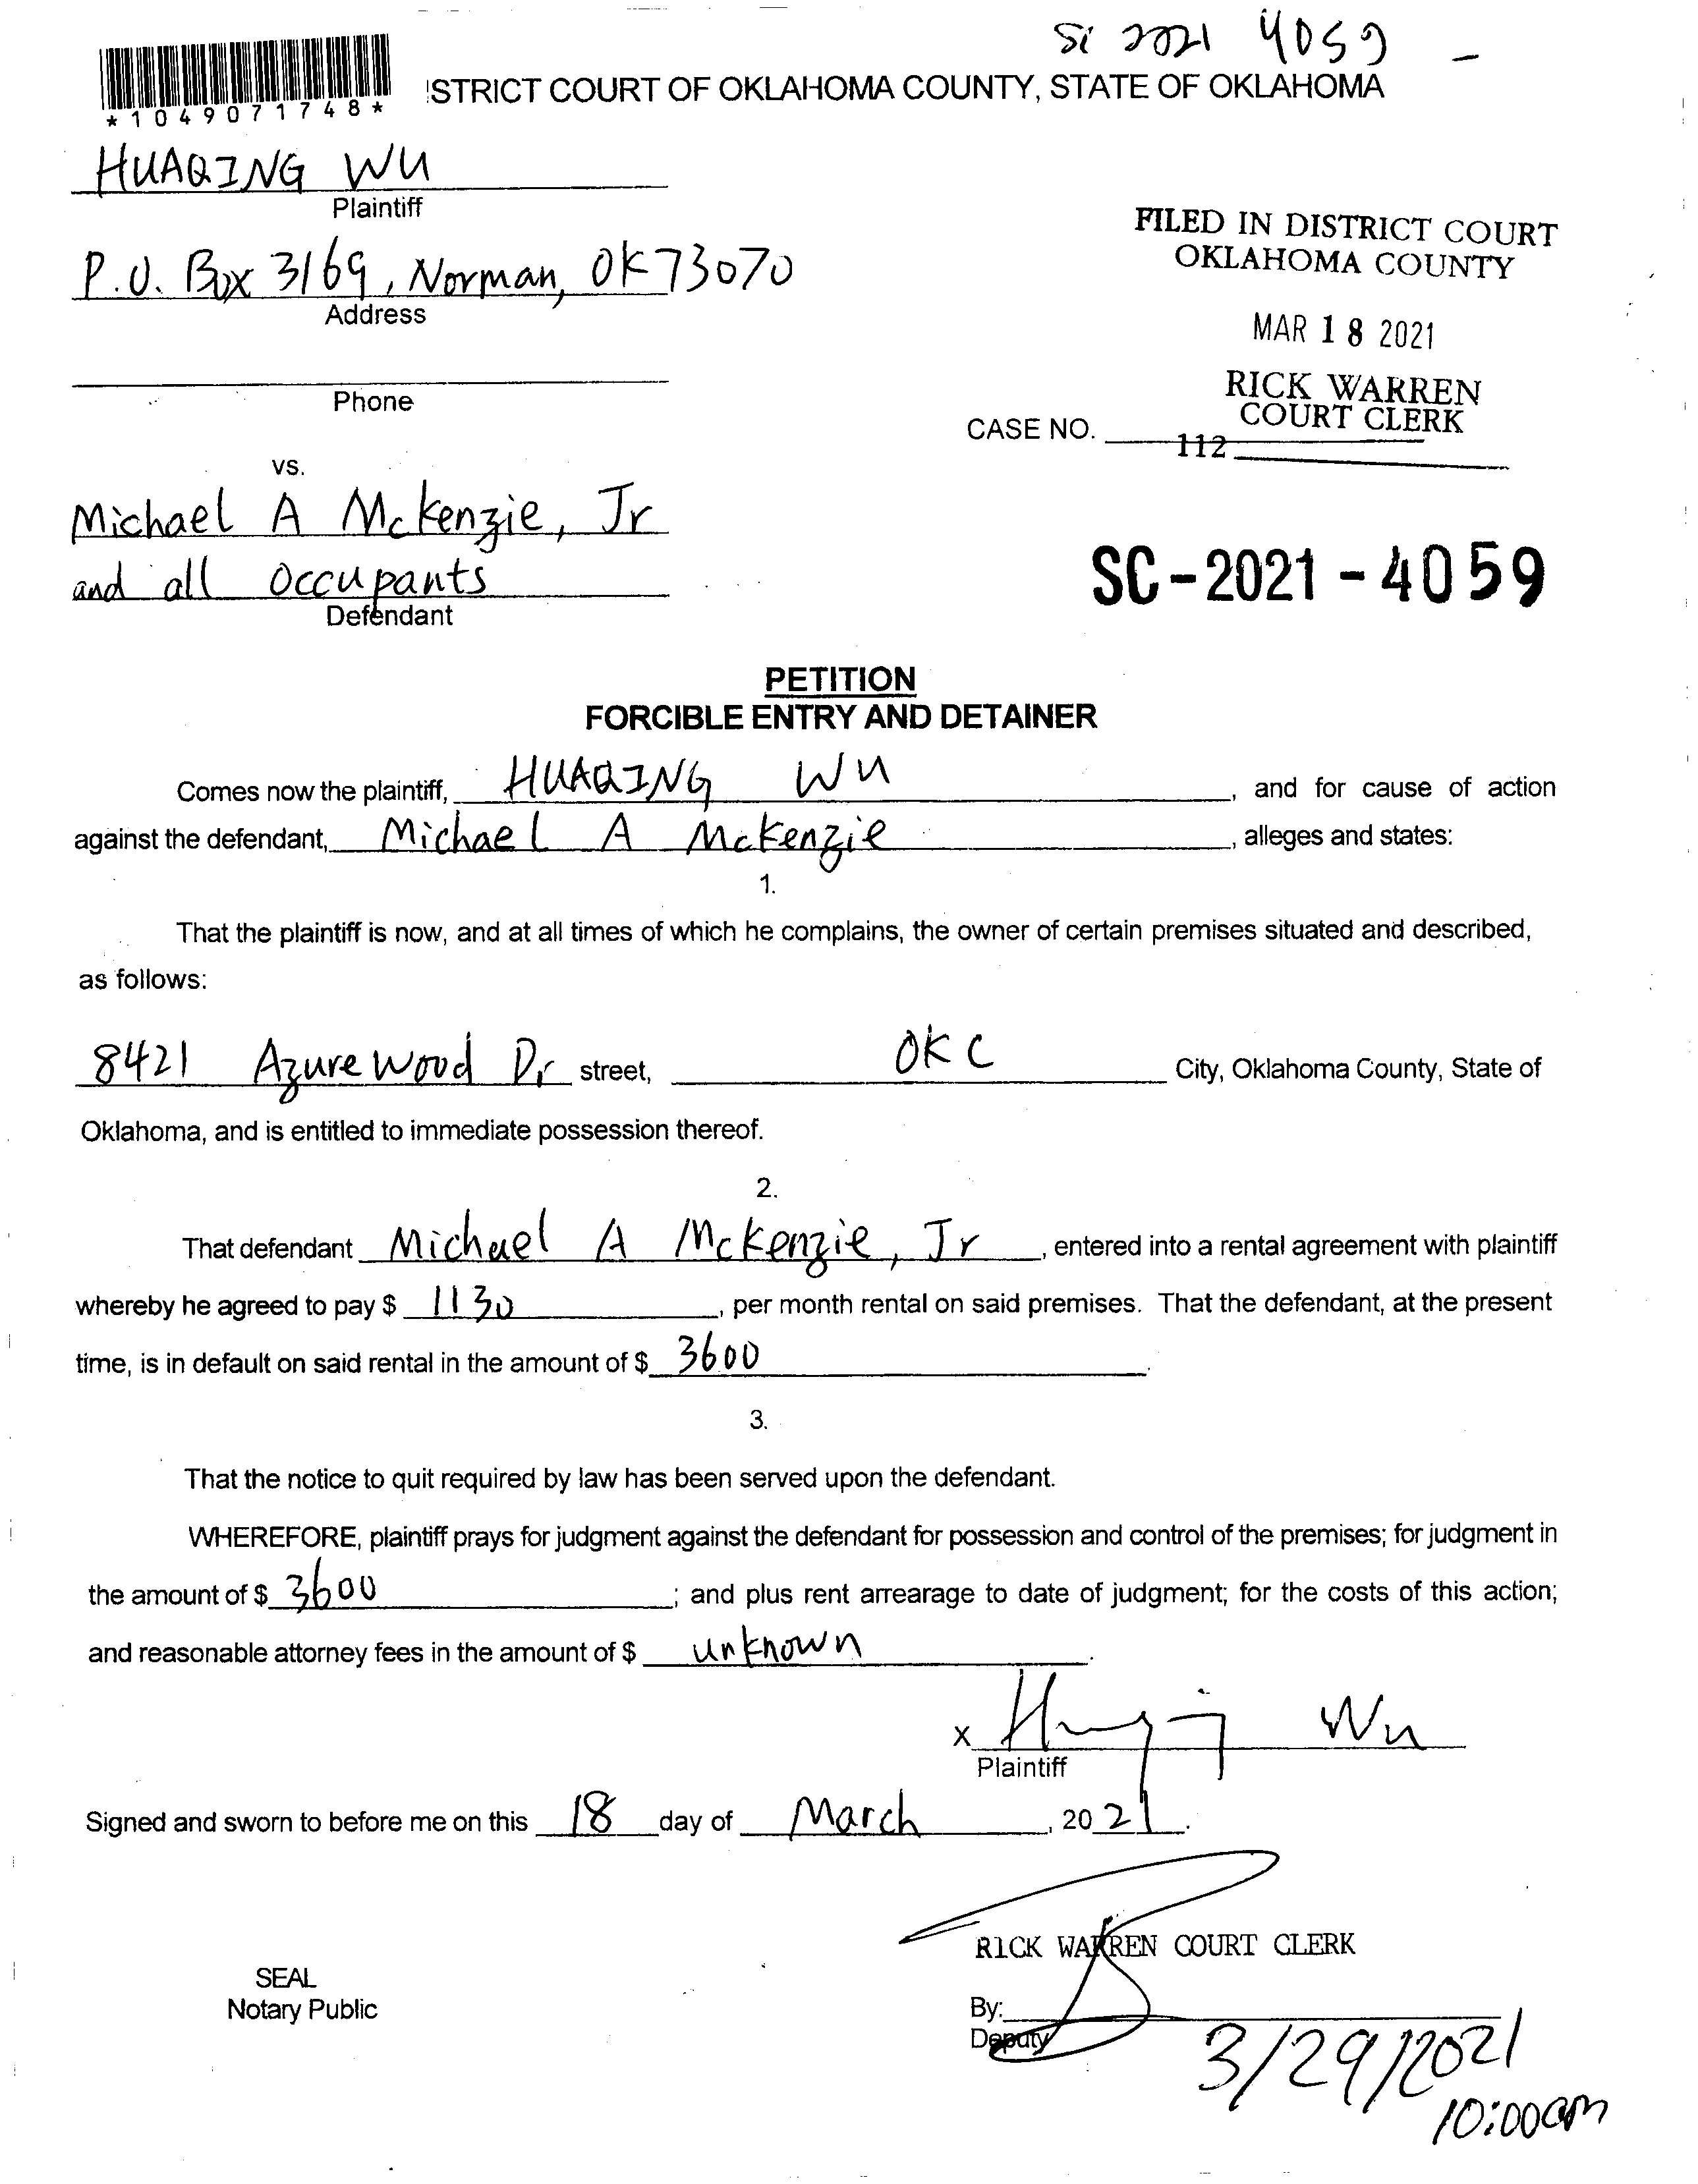 SC 2021 4059
*1049071748*
STRICT COURT OF OKLAHOMA COUNTY, STATE OF OKLAHOMA
HUAQING WU
Plaintiff
P.O. Box 3169, Norman, OK 73070
Address
Phone
FILED IN DISTRICT COURT
OKLAHOMA COUNTY
MAR 18 2021
RICK WARREN
COURT CLERK
CASE NO.
112
vs.
Michael A Mckenzie, Jr
and all Occupants
Defendant
SC-2021-4059
PETITION
FORCIBLE ENTRY AND DETAINER
Comes now the plaintiff, HUAQING WU, and for cause of action
against the defendant, Michael A Mckenzie, alleges and states:
1.
That the plaintiff is now, and at all times of which he complains, the owner of certain premises situated and described,
as follows:
8421 Azurewood Dr street, OKC City, Oklahoma County, State of
Oklahoma, and is entitled to immediate possession thereof.
2.
That defendant Michael A Mckenzie, Jr, entered into a rental agreement with plaintiff
whereby he agreed to pay $ 1130, per month rental on said premises. That the defendant, at the present
time, is in default on said rental in the amount of $ 3600.
3.
That the notice to quit required by law has been served upon the defendant.
WHEREFORE, plaintiff prays for judgment against the defendant for possession and control of the premises; for judgment in
the amount of $ 3600; and plus rent arrearage to date of judgment; for the costs of this action;
and reasonable attorney fees in the amount of $ unknown.
x Huaqing Wu
Plaintiff
Signed and sworn to before me on this 18 day of March, 2021.
RICK WARREN COURT CLERK
SEAL
Notary Public
By:
Deputy
3/29/2021
10:00am